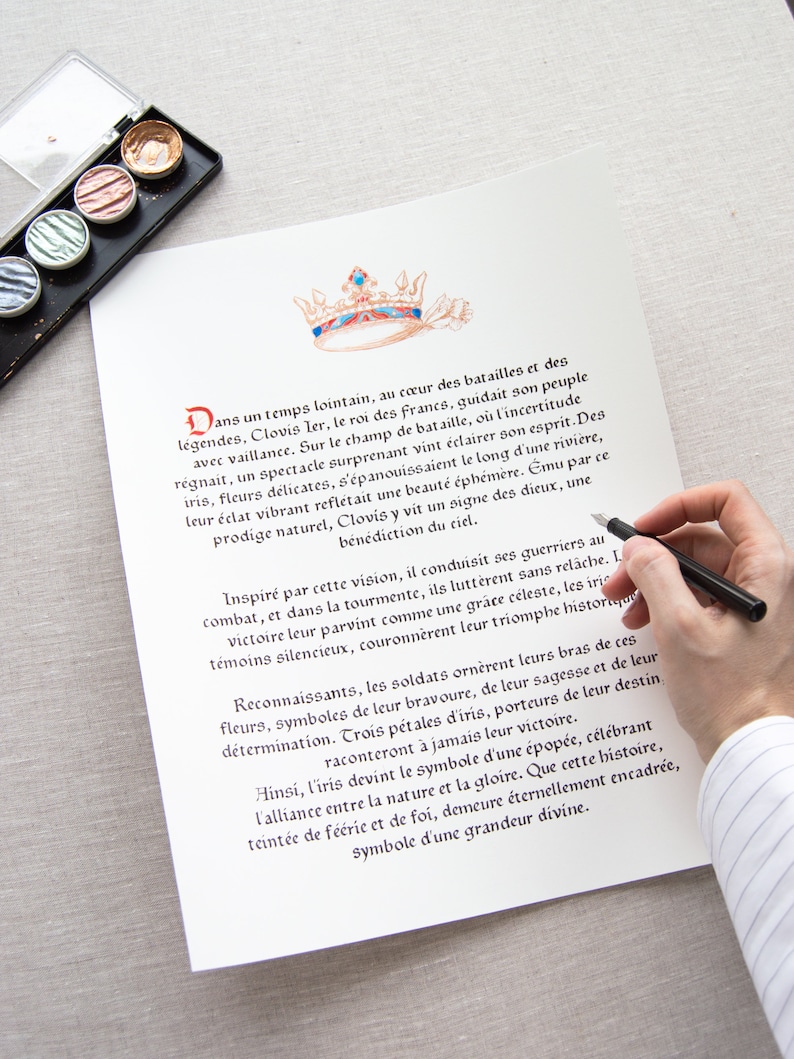 Dans un temps lointain, au cœur des batailles et des
légendes, Clovis Ier, le roi des Francs, guidait son peuple
avec vaillance. Sur le champ de bataille, où l'incertitude
régnait, un spectacle surprenant vint éclairer son esprit. Des
iris, fleurs délicates, s'épanouissaient le long d'une rivière,
leur éclat vibrant reflétait une beauté éphémère. Ému par ce
prodige naturel, Clovis y vit un signe des dieux, une
bénédiction du ciel.
Inspiré par cette vision, il conduisit ses guerriers au
combat, et dans la tourmente, ils luttèrent sans relâche.
victoire leur parvint comme une grâce céleste, les
témoins silencieux, couronnèrent leur triomphe historique
Reconnaissants, les soldats ornèrent leurs bras de ces
fleurs, symboles de leur bravoure, de leur sagesse et de leur
détermination. Trois pétales d'iris, porteurs de leur destin,
raconteront à jamais leur victoire.
Ainsi, l'iris devint le symbole d'une épopée, célébrant
l'alliance entre la nature et la gloire. Que cette histoire,
teintée de féérie et de foi, demeure éternellement encadrée,
symbole d'une grandeur divine.